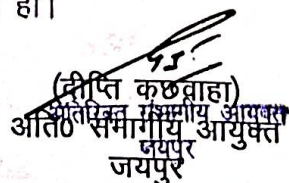 हो।
(दीप्ति कछवाहा)
अतिरिक्त संभागीय आयुक्त
अति० संभागीय आयुक्त
जयपुर
जयपुर